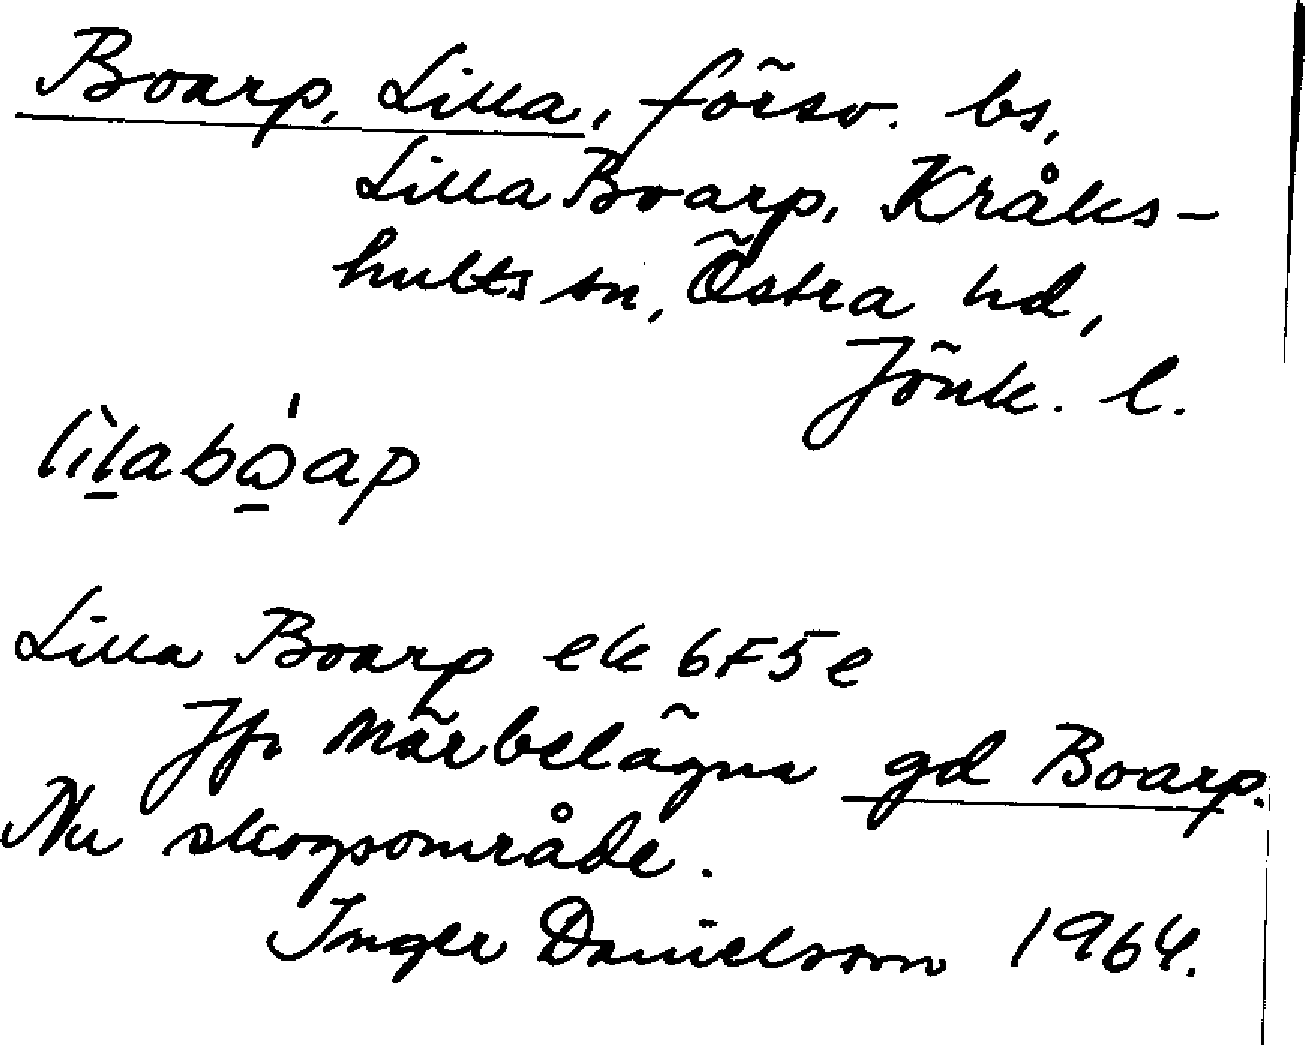 Boarp, Lilla, försv. bs,
Lilla Boarp, Kråks-
hults sn, Östra hd,
Jönk. l.
Lilla Boarp ek 6F5e
Jfr närbelägna gd Boarp.
Nu skogsområde.
Inger Danielsson 1964.